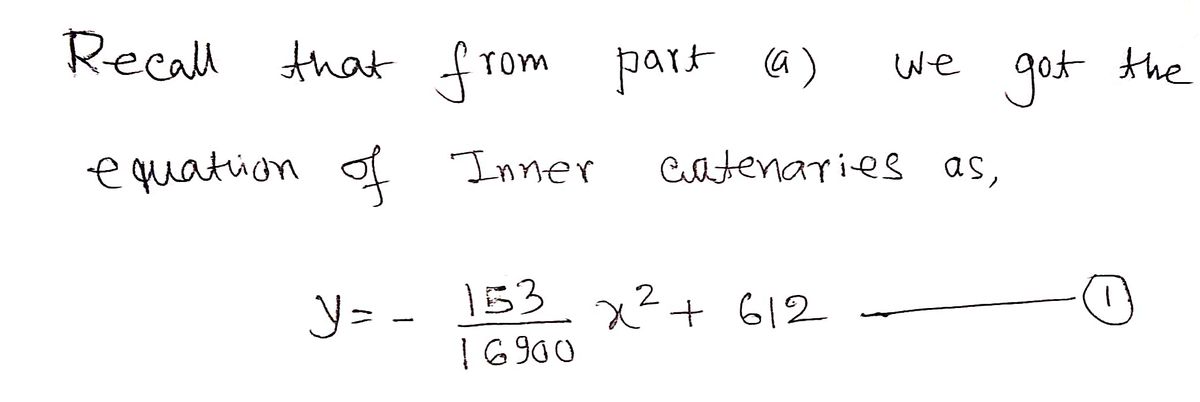 Recall that from part (a) we got the
equation of Inner catenaries as,
y = - 153/16900 x² + 612 ——— ①